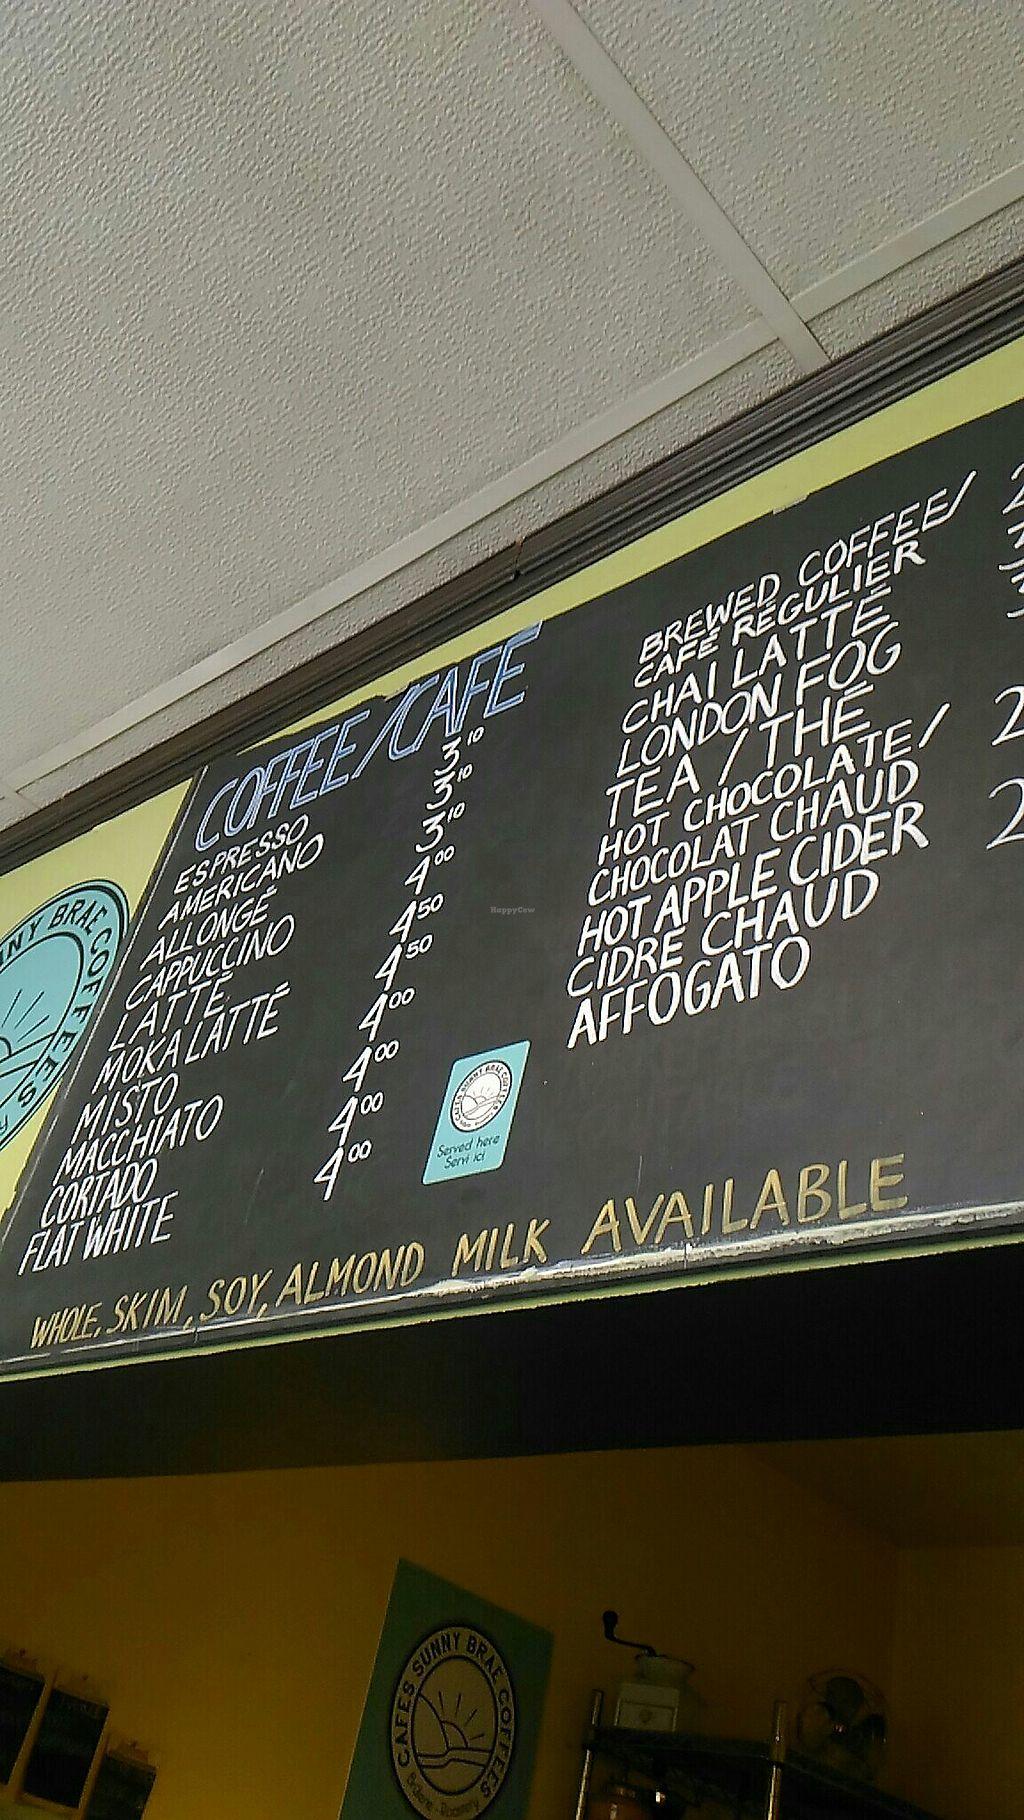 COFFEE/CAFÉ
ESPRESSO 3.10
AMERICANO 3.10
ALLONGÉ 3.10
CAPPUCCINO 4.00
LATTÉ 4.50
MOKA LATTÉ 4.50
MISTO 4.00
MACCHIATO 4.00
CORTADO 4.00
FLAT WHITE 4.00
BREWED COFFEE/ 2
CAFÉ RÉGULIER
CHAI LATTÉ
LONDON FOG 3
TEA / THÉ
HOT CHOCOLATE/ 2
CHOCOLAT CHAUD
HOT APPLE CIDER 2
CIDRE CHAUD
AFFOGATO
Served here
Servi ici
WHOLE, SKIM, SOY, ALMOND MILK AVAILABLE
NNY BRAE COFFEES
HappyCow
CAFES SUNNY BRAE COFFEES
CAFES SUNNY BRAE COFFEES
Roastery